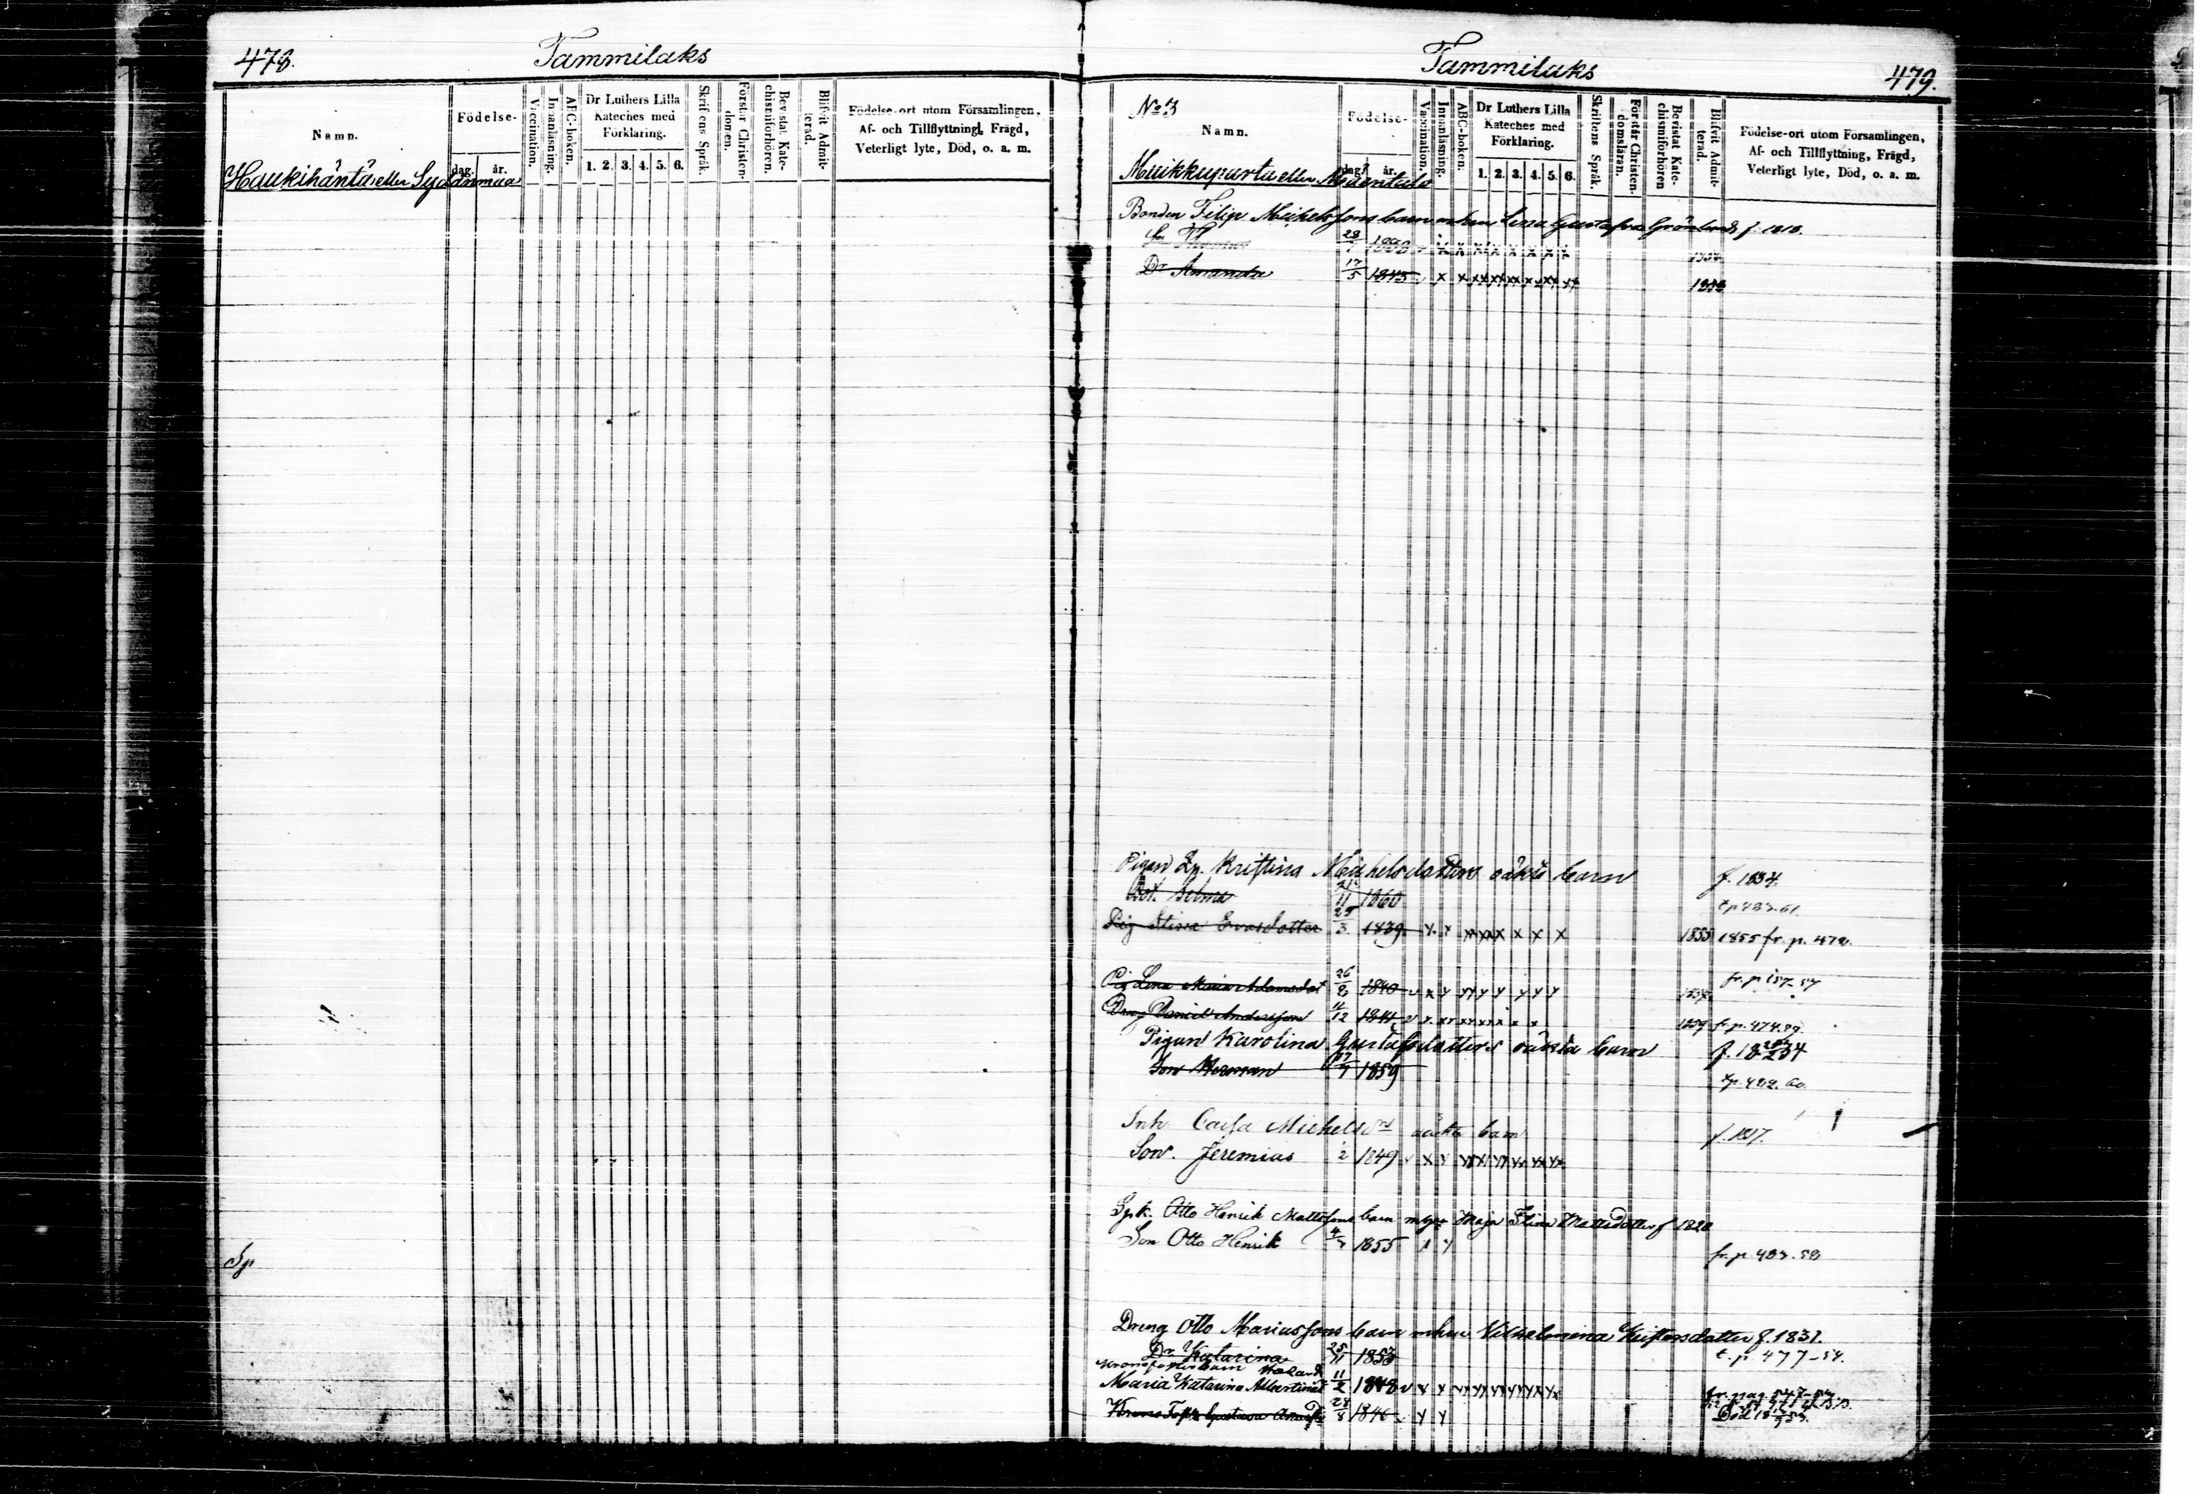 478.
Tammilaks
Namn.
Födelse-
dag. år.
Vaccination.
Innanläsning.
ABC-boken.
Dr Luthers Lilla Kateches med Förklaring.
1. 2. 3. 4. 5. 6.
Skriftens Språk.
Förstår Christen-domen.
Bevistat Kate-chismiförhören.
Blifvit Admit-terad.
Födelse-ort utom Församlingen,
Af- och Tillflyttning, Frägd,
Veterligt lyte, Död, o. a. m.
Haukihäntä eller Sydänmaa
Sp
Tammilaks
479.
No 3
Namn.
Födelse-
dag. år.
Vaccination.
Innanläsning.
ABC-boken.
Dr Luthers Lilla Kateches med Förklaring.
1. 2. 3. 4. 5. 6.
Skriftens Språk.
Förstår Christen-domsläran.
Bevistat Kate-chismiförhören
Blifvit Admit-terad.
Födelse-ort utom Församlingen,
Af- och Tillflyttning, Frägd,
Veterligt lyte, Död, o. a. m.
Muikkuparta eller
Bonden Filip Michelssons barn m hun Lena Gustafsd Grönlund f. 1818.
Son Thomas
Dr Amanda 17/5 1843 x x xx xx xx x xx xx 1858
Pigan Kristina Michelsdotters oäkta barn f. 1834.
Dot. Selma 21/11 1860 t p 483. 61.
Pig Stina Evasdotter 25/3 1839 x x xx xx x x x 1855 1855 fr. p. 472.
Pig Lena Maria Adamsdot 26/8 1840 x x xx x x x x x fr. p 157-57
Dreng Daniel Andersson 11/12 1841 1859 fr. p. 474. 59.
Pigan Karolina Gustafsdotters oäkta barn
Son Herman 27/7 1859 t p. 482. 60.
Inh. Caisa Michelsdr oäkta barn
Son Jeremias 1849
Otto Henrik Mattssons barn Maja Stina Mattsdotter f 1820
Son Otto Henrik 1855 x x fr. p. 483. 58
Dreng Otto Mariassons barn m hun Vilhelmina Kristersdotter f. 1831.
Dr Katarina 25/11 t. p. 477-54.
Maria Katarina Albertina 11/2 1848 fr. pag. 547-54.
Gustava 28/8 1846 x x Död